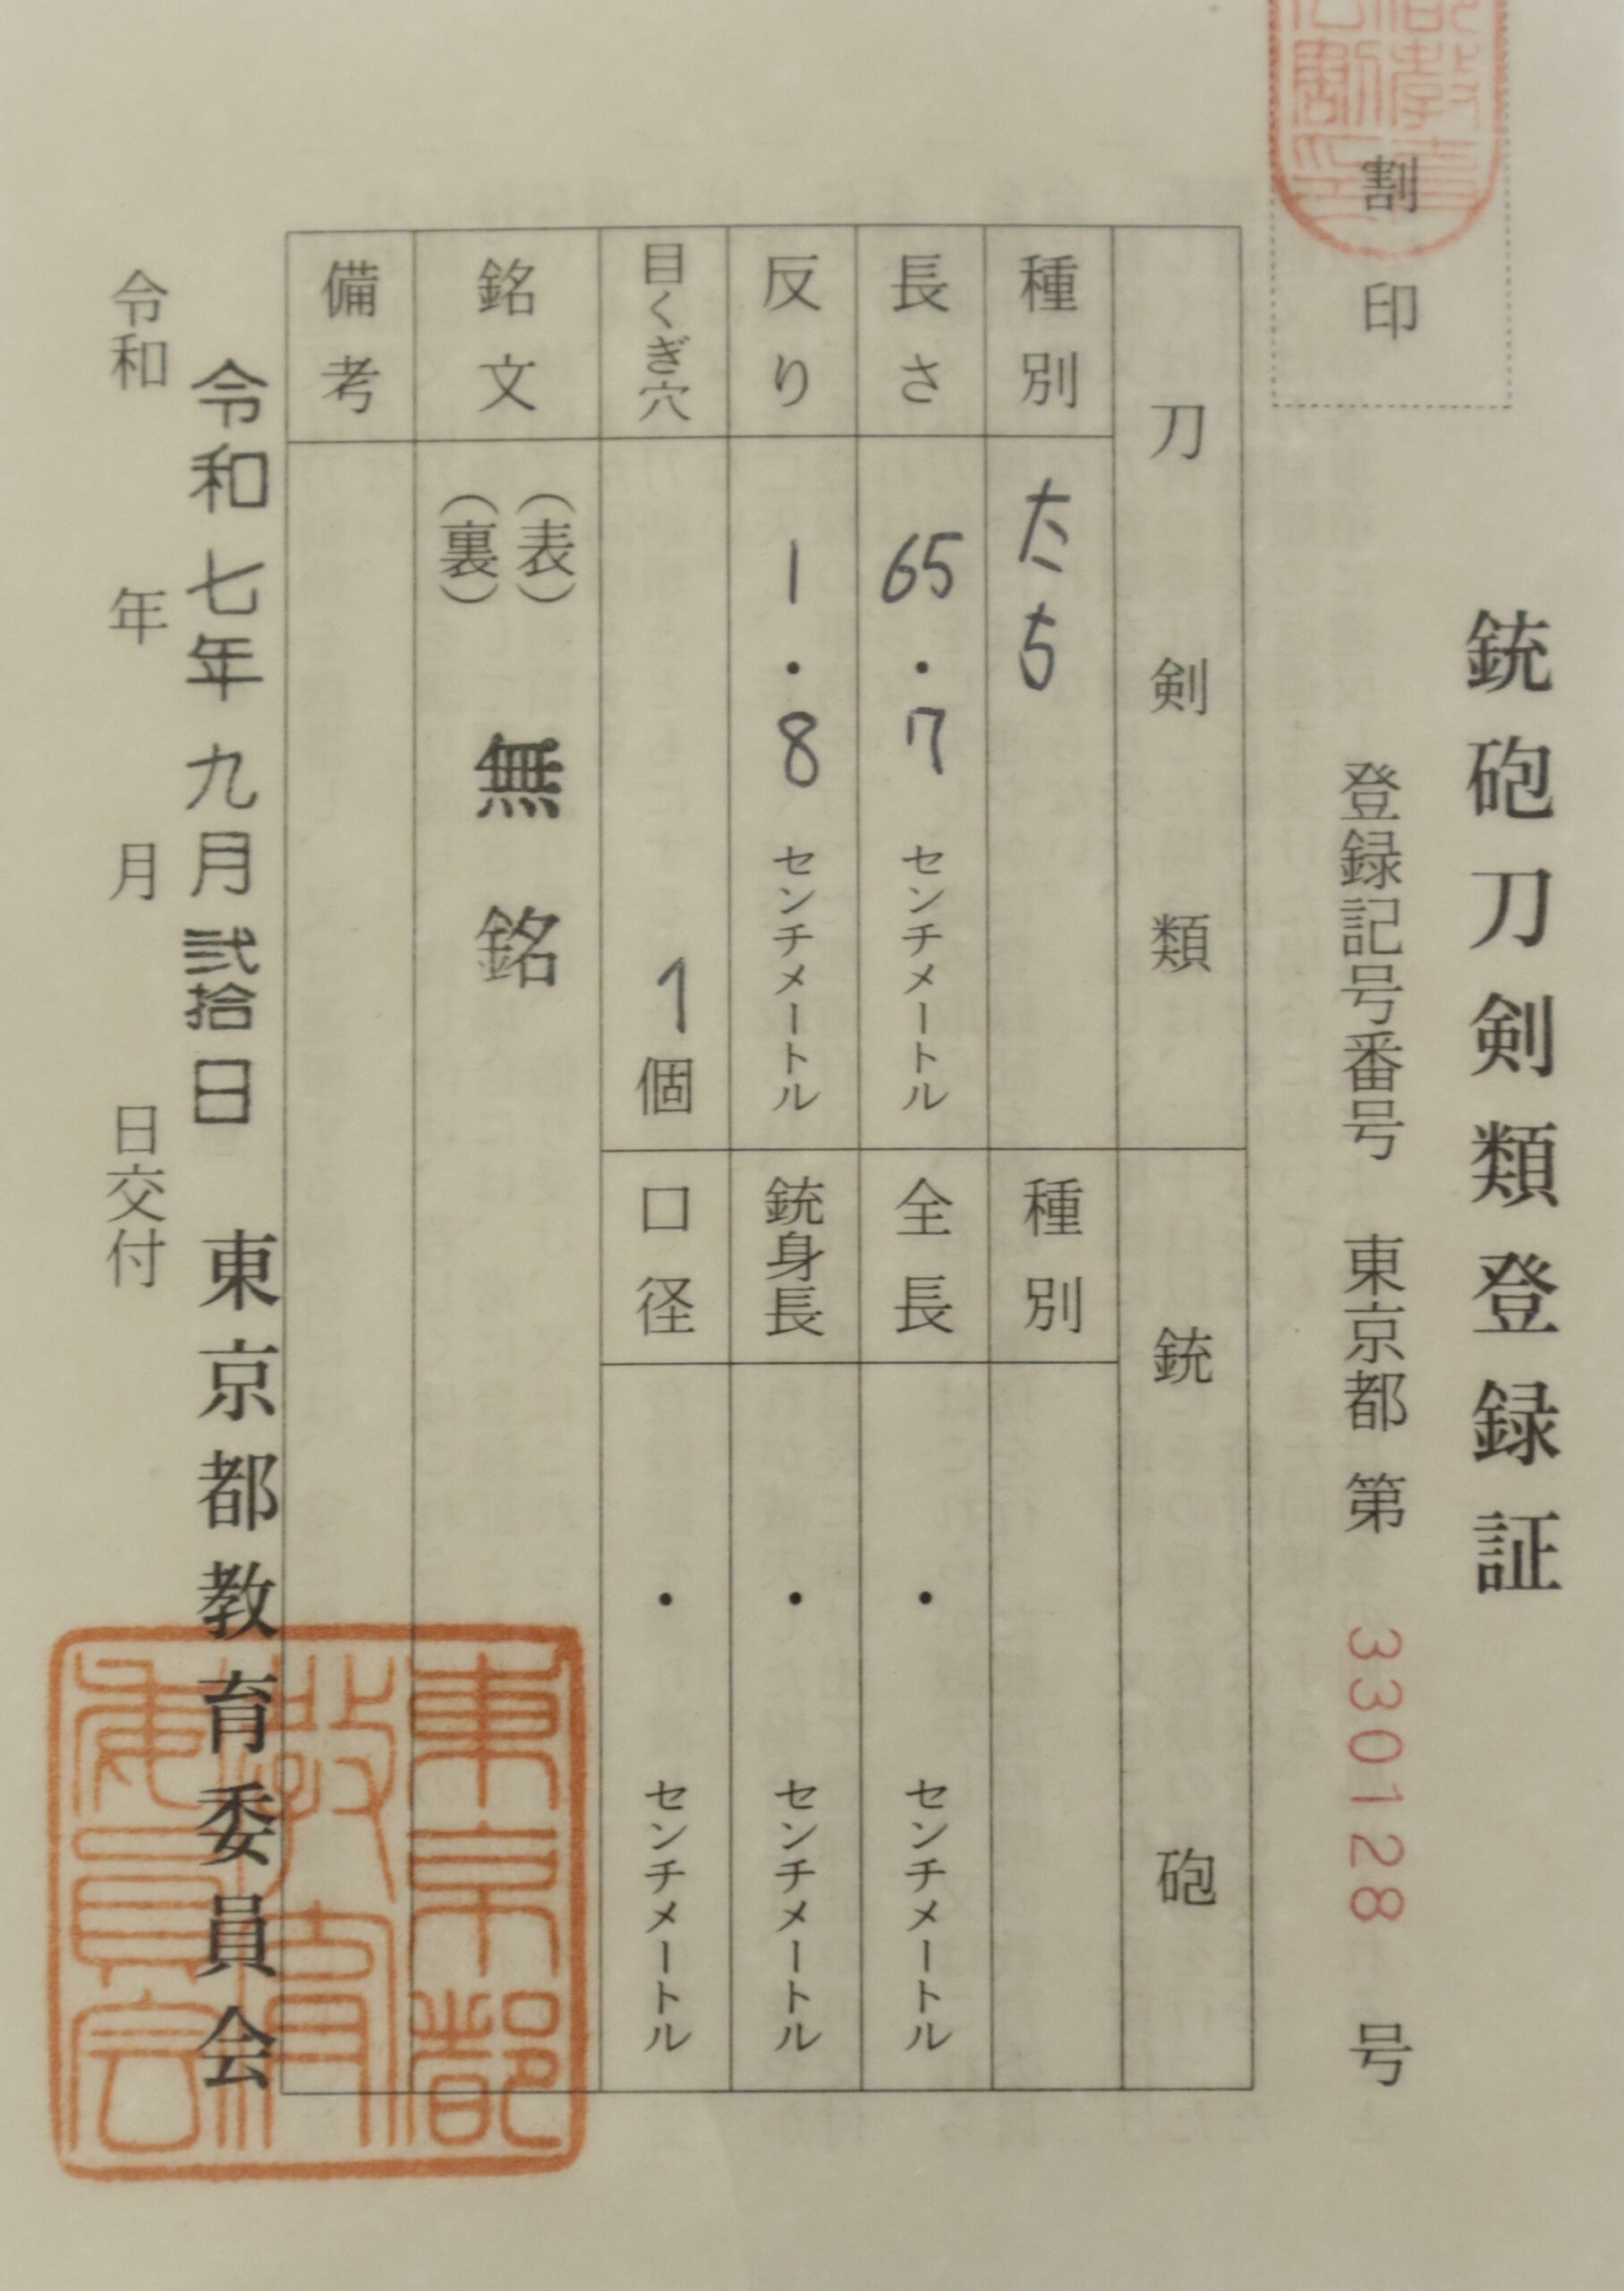 割印
銃砲刀剣類登録証
登録記号番号 東京都 第 330128 号
刀剣類
種別 たち
長さ 65・7 センチメートル
反り 1・8 センチメートル
目くぎ穴 1個
銃砲
種別
全長 ・ センチメートル
銃身長 ・ センチメートル
口径 ・ センチメートル
銘文 (表)
(裏)
無銘
備考
令和七年九月弐拾日 東京都教育委員会
令和 年 月 日交付
東京都
教育
委員会